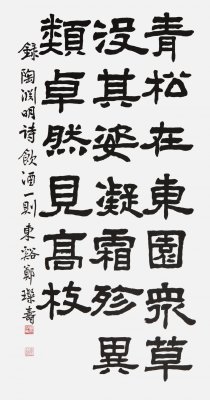 青松在東園衆草
没其姿凝霜殄異
類卓然見髙枝
録陶渊明诗飲酒一則東谿鄭壽